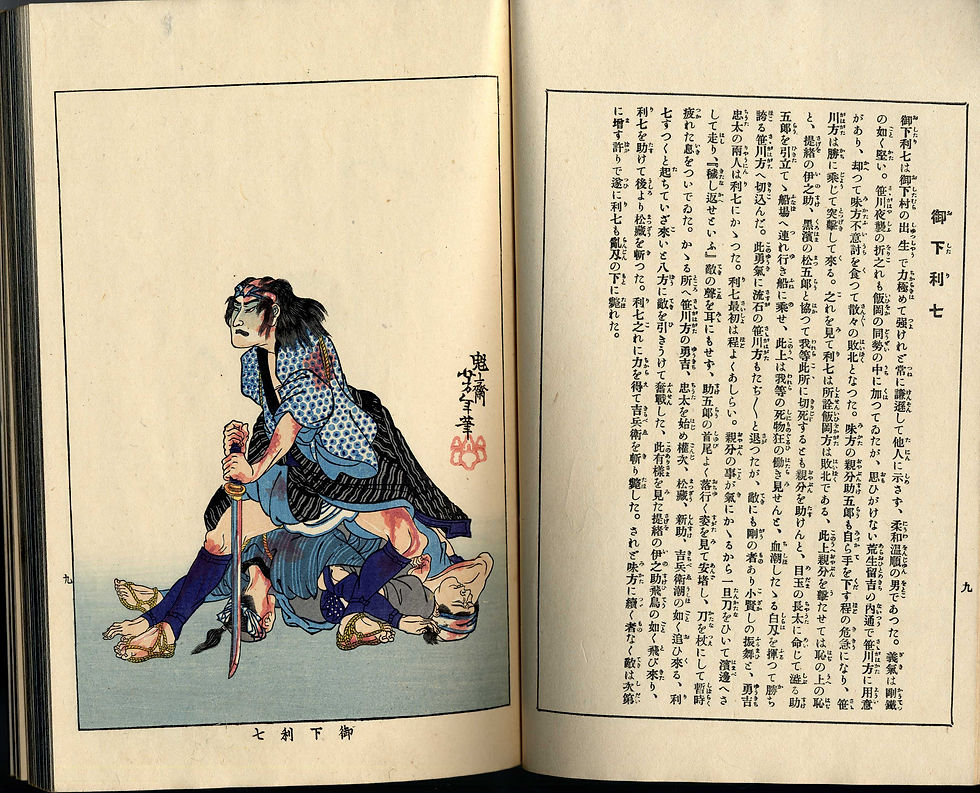 御下利七
御下利七は御下村の出生で力極めて強けれど常に謙遜して他人に示さず、柔和温順の男であつた。義氣は剛鐵
の如く堅い。笹川夜襲の折之れも飯岡の同勢の中に加つてゐたが、思ひがけない荒生留吉の內通で笹川方に用意
があり、却つて味方不意討を食つて散々の敗北となつた。味方の親分助五郎も自ら手を下す程の危急になり、笹
川方は勝に乘じて突擊して來る。之れを見て利七は所詮飯岡方は敗北である、此上親分を擊たせては恥の上の恥
と、提緒の伊之助、黑濱の松五郎と協つて我等此所に切死するとも親分を助けんと、目玉の長太に命じて澁る助
五郎を引立てゝ船場へ連れ行き船に乘せ、此上は我等の死物狂の働き見せんと、血潮したゝる白刄を揮つて勝ち
誇る笹川方へ切込んだ。此勇氣に流石の笹川方もたぢ〱と退つたが、敵にも剛の者あり小賢しの振舞と、勇吉
忠太の兩人は利七にかゝつた。利七最初は程よくあしらい。親分の事が氣にかゝるから一旦刀をひいて濱邊へさ
して走り、『穢し返せといふ』敵の聲を耳にもせず、助五郎の首尾よく落行く姿を見て安堵し、刀を杖にして暫時
疲れた息をついでゐた。かゝる所へ笹川方の勇吉、忠太を始め權次、松藏、新助、吉兵衞潮の如く追ひ來る、利
七すつくと起ちていざ來いと八方に敵を引きうけて奮戰した、此有樣を見た提緒の伊之助飛鳥の如く飛び來り、
利七を助けて後より松藏を斬つた。利七之れに力を得て吉兵衞を斬り斃した。されど味方に續く者なく敵は次第
に增す許りで遂に利七も亂刄の下に斃れた。
九
魁斎芳年筆
御下利七
九